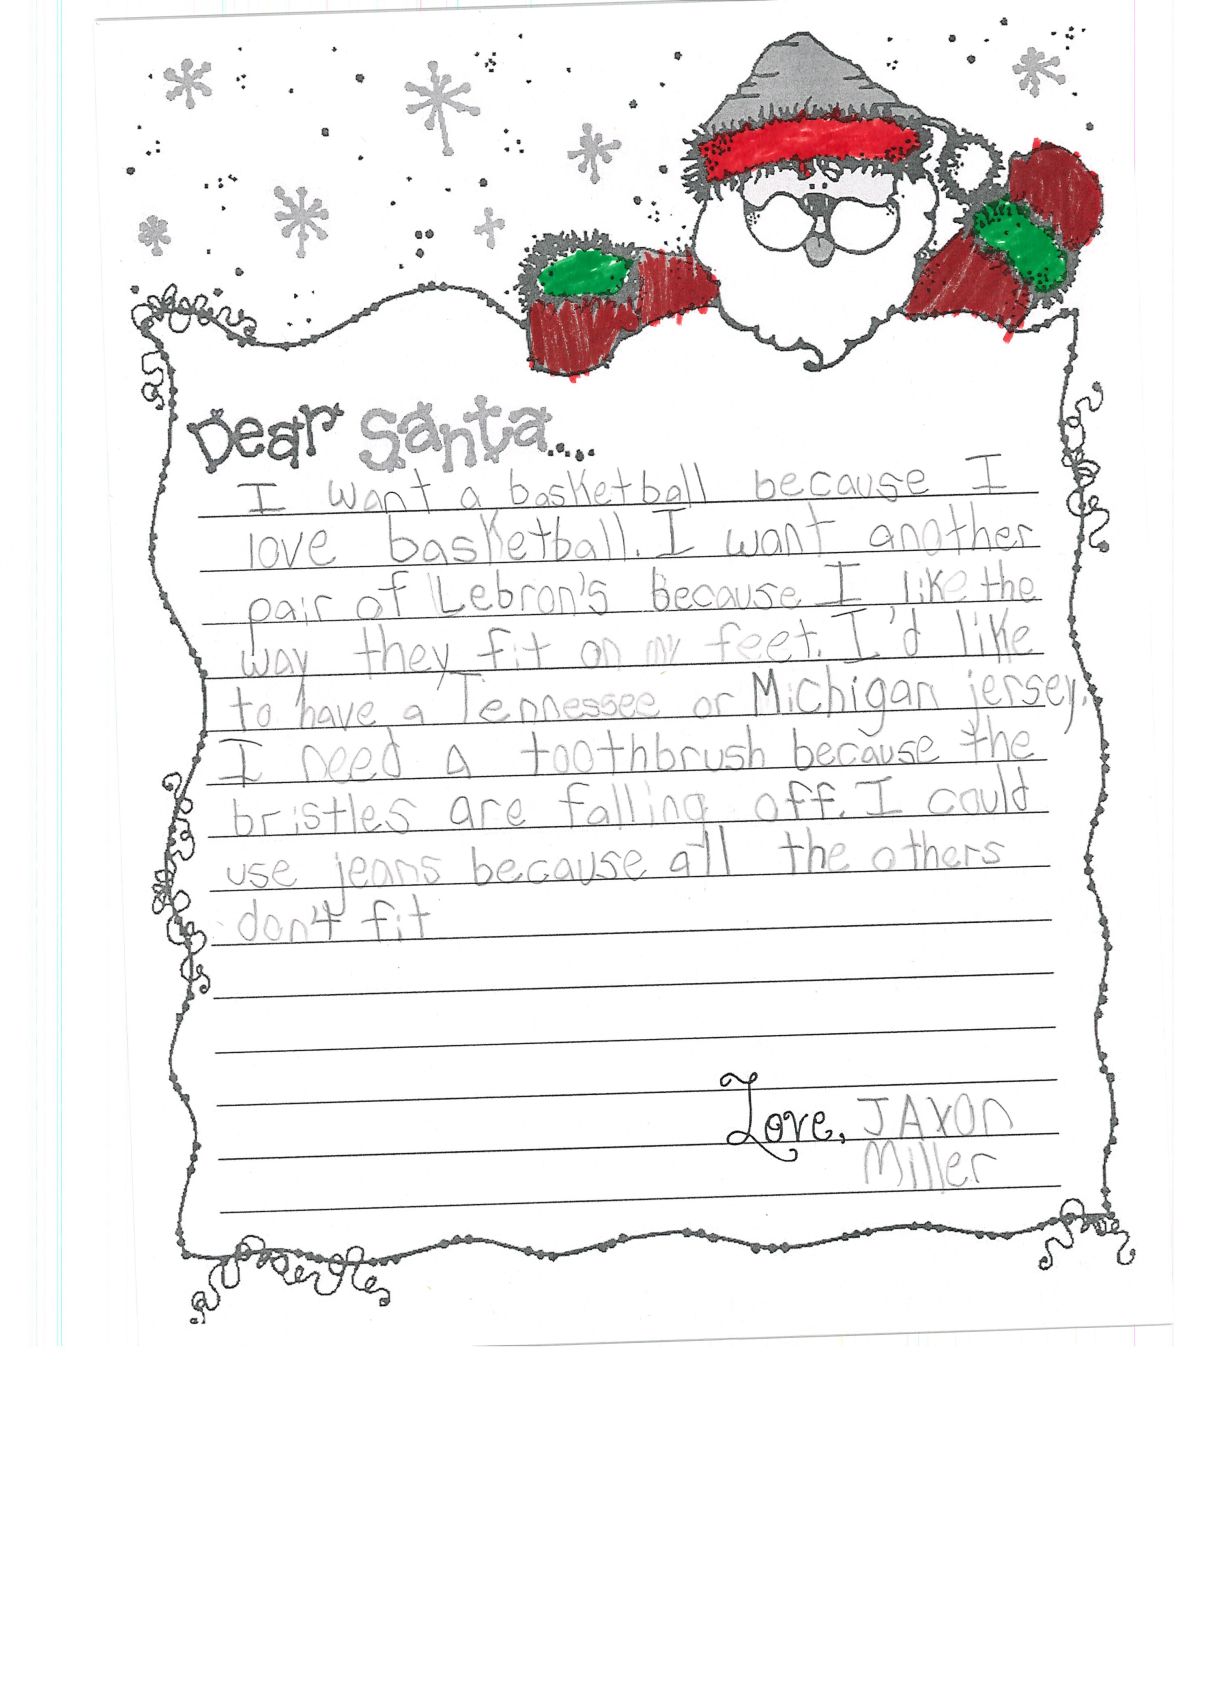 Dear Santa....
I want a basketball because I
love basketball. I want another
pair of Lebron's because I like the
way they fit on my feet. I'd like
to have a Tennessee or Michigan jersey.
I need a toothbrush because the
bristles are falling off. I could
use jeans because all the others
don't fit
Love, JAxon
Miller